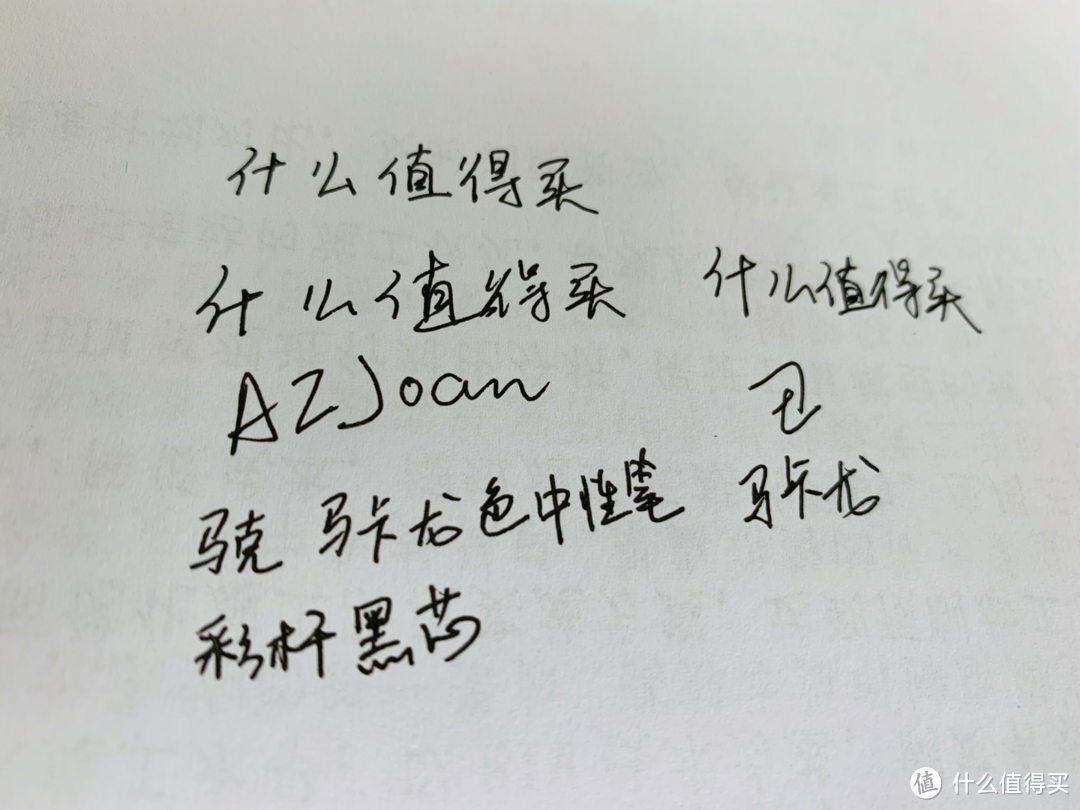 什么值得买
什么值得买 什么值得买
AZJoan
马克 马卡龙色中性笔 马卡龙
彩杆黑芯
值 什么值得买